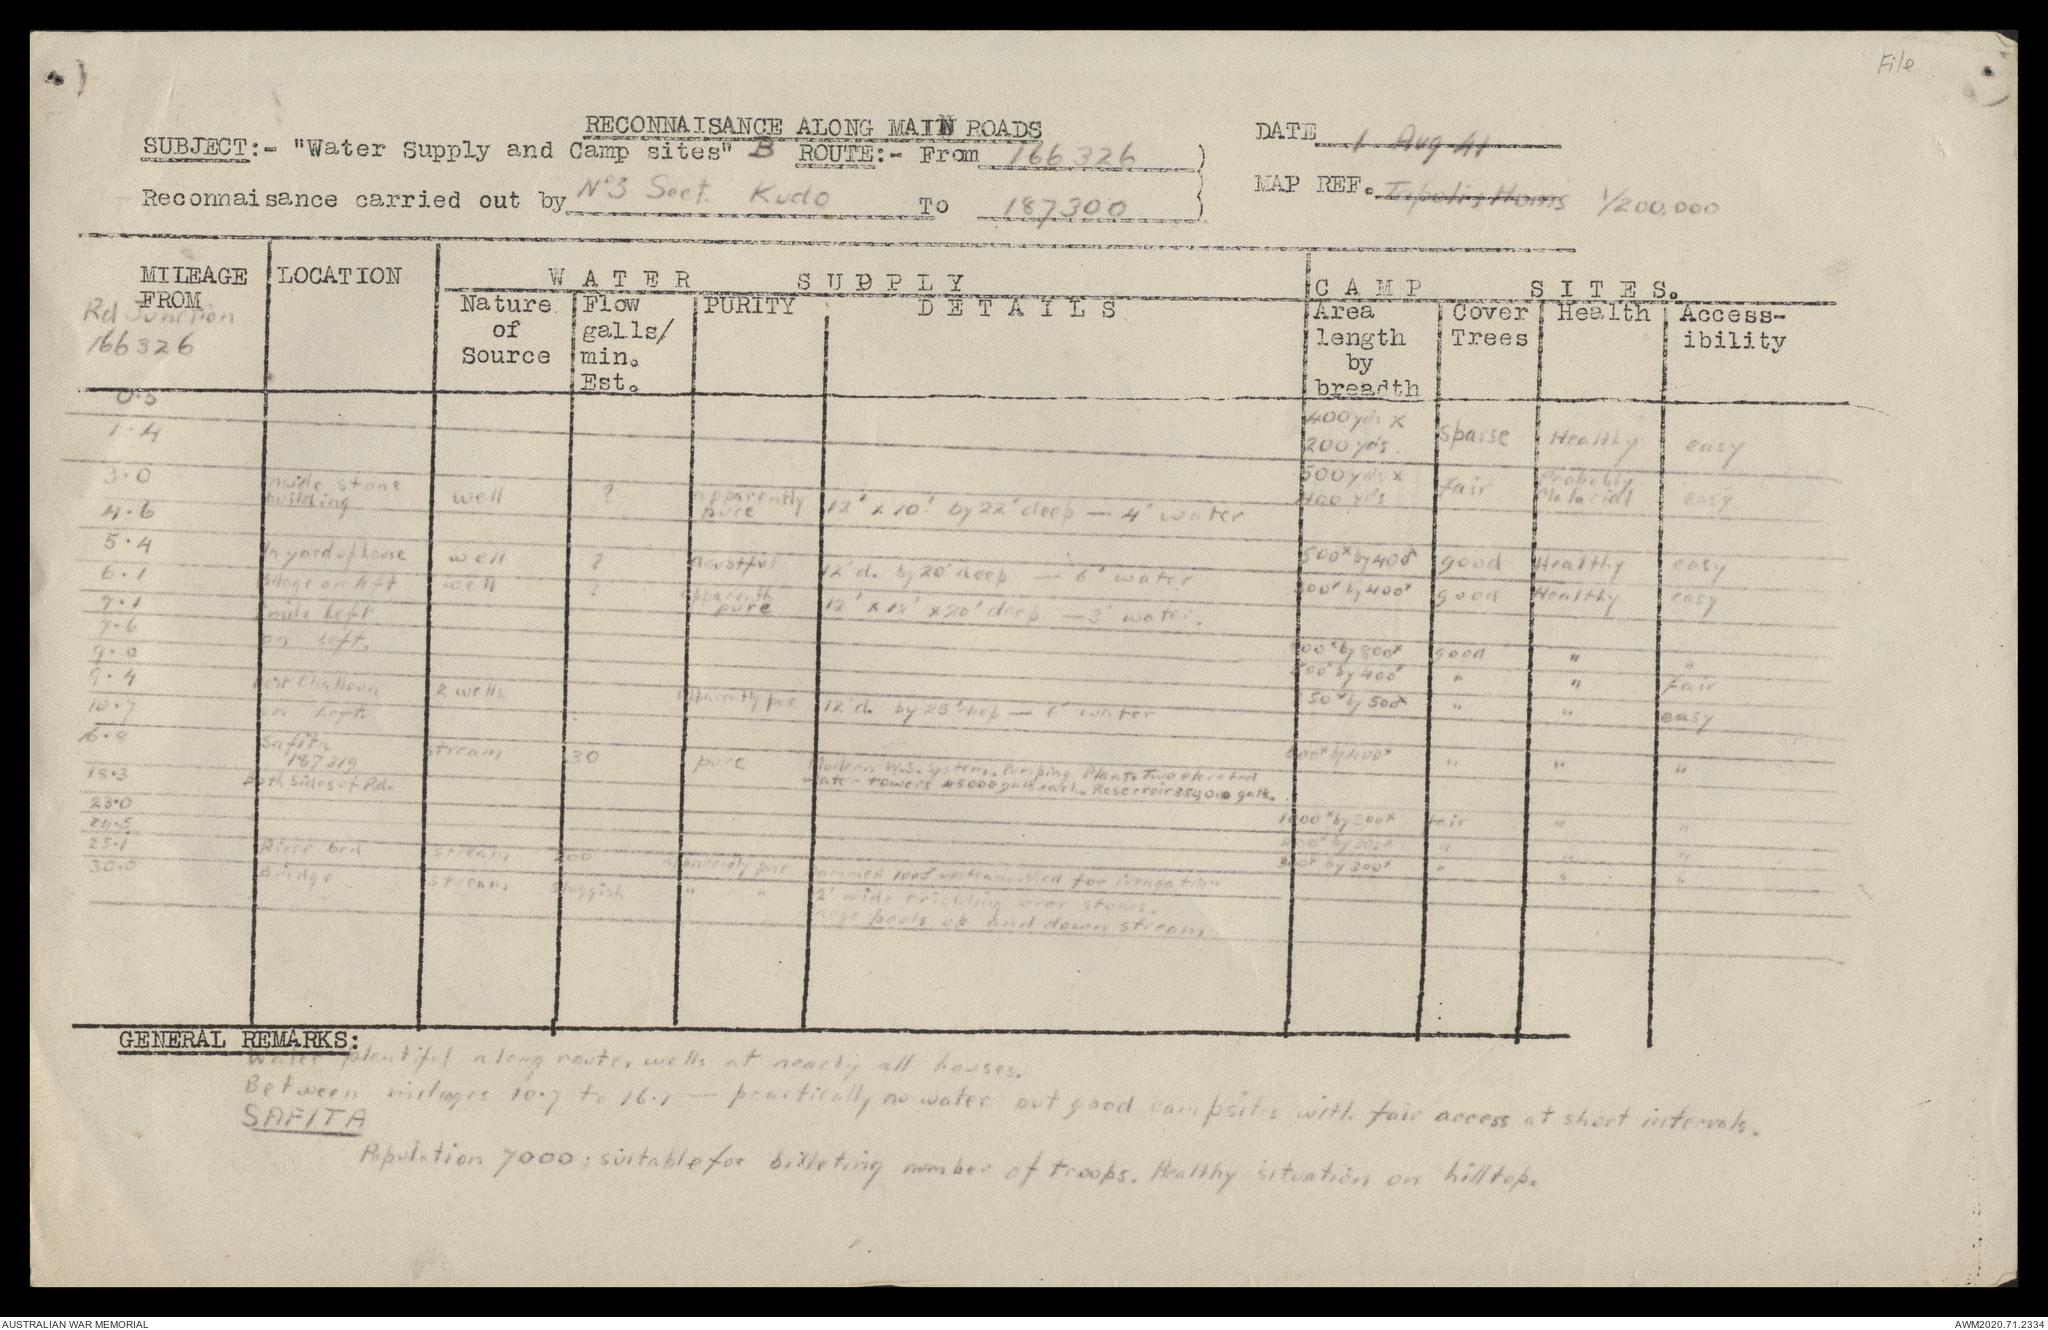 File
RECONNAISANCE ALONG MAIN ROADS
DATE 1 Aug 41
SUBJECT:- "Water Supply and Camp sites" B ROUTE:- From 166326 )
MAP REF. Homs 1/200,000
Reconnaisance carried out by No 3 Sect. Kudo To 187300 )
MILEAGE FROM Rd Junction 166326
LOCATION
WATER SUPPLY
Nature of Source
Flow galls/ min. Est.
PURITY
DETAILS
CAMP SITES.
Area length by breadth
Cover Trees
Health
Access- ibility
0.5
1.4 400 yds x 200 yds sparse Healthy easy
3.0 inside stone building well ? apparently pure 12' x 10' by 22' deep — 4' water 500 yds x 400 yds fair Probably Malarial easy
4.6
5.4 In yard of house well ? doubtful 12' d. by 20' deep — 6' water 500x by 400x good Healthy easy
6.1 village on left well ? apparently pure 12' x 12' x 20' deep — 3' water. by 400x good Healthy easy
7.1 mile left
7.6 on left. by 300x good " "
9.0 by 400x " " fair
9.4 2 wells apparently pure 12' d. by 25' deep — water by 500x " " easy
10.7 on left
16.8 Safita 187319 stream 30 pure Modern W.S. System. Pumping Plant. Two elevated water towers 45000 galls each. Reservoir galls. by 400x " " "
18.3 Both sides of Rd.
23.0 1000x by 300x fair " "
24.5 by 300x " " "
25.1 River bed stream 200 apparently pure Dammed 1000x upstream. Used for irrigation by 300x " " "
30.0 Bridge stream sluggish " " 2' wide trickling over stones.
large pools up and down stream
GENERAL REMARKS:
Water plentiful along route, wells at nearly all houses.
Between mileages 10.7 to 16.1 — practically no water but good campsites with fair access at short intervals.
SAFITA
Population 7000; suitable for billeting number of troops. Healthy situation on hilltop.
AUSTRALIAN WAR MEMORIAL
AWM2020.71.2334